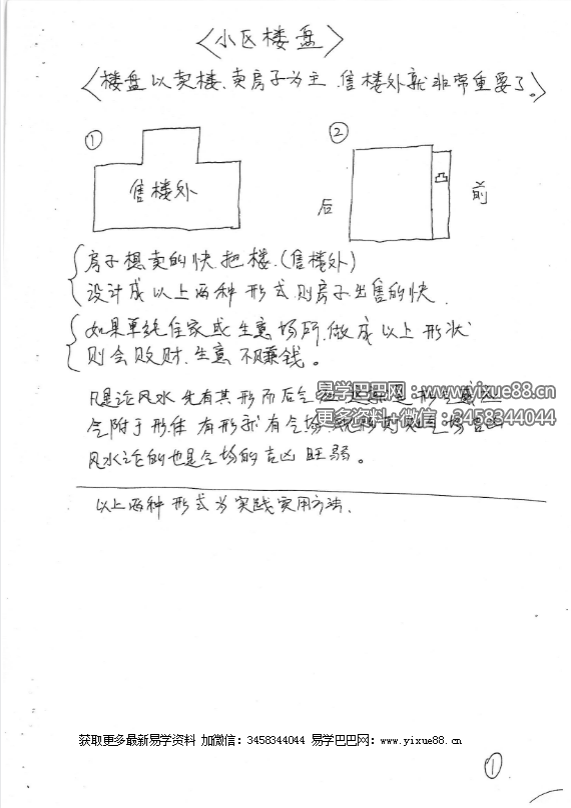 〈小区楼盘〉
〈楼盘以卖楼、卖房子为主、售楼外就非常重要了。〉
① ②
售楼外
凸
后 前
房子想卖的快、把楼、(售楼外)
设计成以上两种形式、则房子出售的快、
如果单纯住家或生意场所、做成以上形状
则会败财、生意不赚钱。
凡是论风水 先有其形而后
易学巴巴网：www.yixue88.cn
更多资料+微信：3458344044
气附于形体 有形就有气场
风水论的也是气场的吉凶旺弱。
以上两种形式为实践实用方法、
获取更多最新易学资料 加微信：3458344044 易学巴巴网：www.yixue88.cn
①